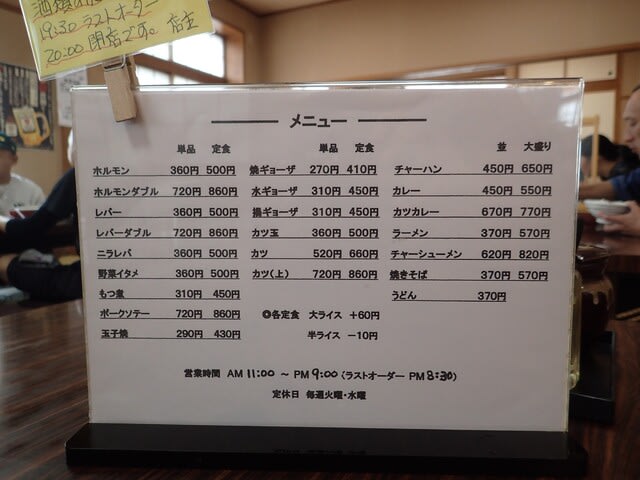 19:30 ラストオーダー
20:00 閉店です。 店主
メニュー
単品 定食
ホルモン 360円 500円
ホルモンダブル 720円 860円
レバー 360円 500円
レバーダブル 720円 860円
ニラレバ 360円 500円
野菜イタメ 360円 500円
もつ煮 310円 450円
ポークソテー 720円 860円
玉子焼 290円 430円
単品 定食
焼ギョーザ 270円 410円
水ギョーザ 310円 450円
揚ギョーザ 310円 450円
カツ玉 360円 500円
カツ 520円 660円
カツ(上) 720円 860円
◎各定食 大ライス +60円
半ライス -10円
並 大盛り
チャーハン 450円 650円
カレー 450円 550円
カツカレー 670円 770円
ラーメン 370円 570円
チャーシューメン 620円 820円
焼きそば 370円 570円
うどん 370円
営業時間 AM 11:00 ~ PM 9:00 (ラストオーダー PM 8:30)
定休日 毎週火曜・水曜